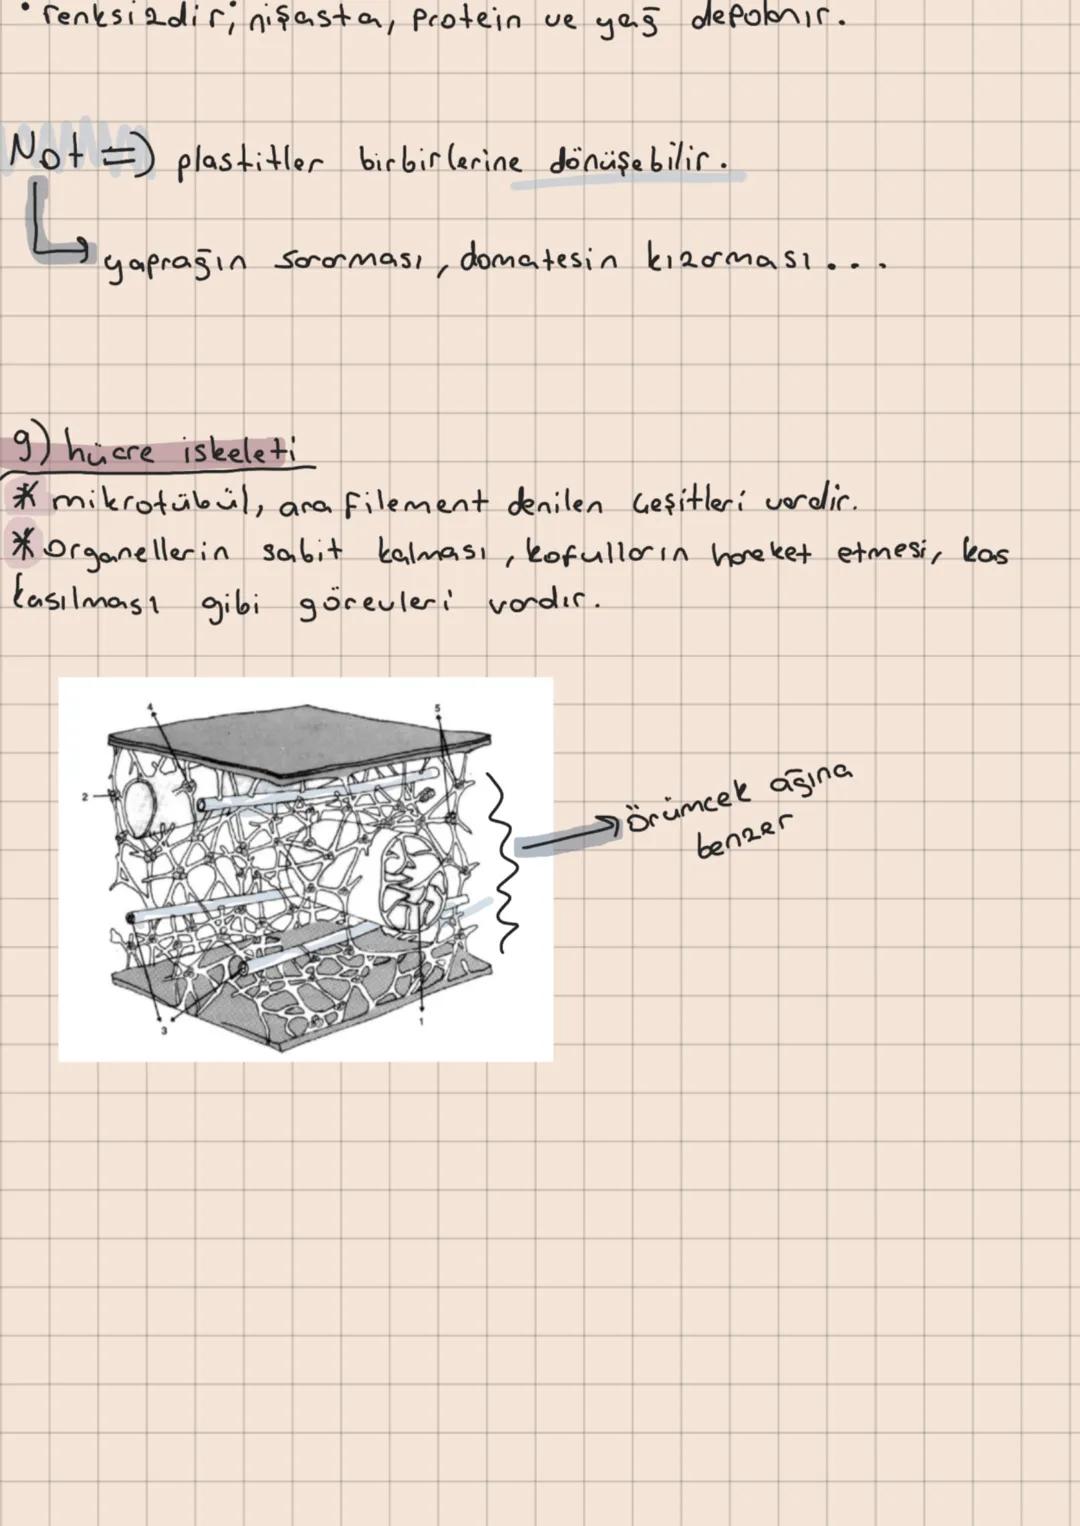 • renksizdir; nişasta, protein ve yağ depolanır.
Not => plastitler birbirlerine dönüşebilir.
yaprağın sararması, domatesin kızarması...
9) hücre iskeleti
* mikrotübül, ara filement denilen çeşitleri vardır.
* Organellerin sabit kalması, kofulların hareket etmesi, kas
kasılması gibi görevleri vardır.
4
5
2
örümcek ağına
benzer
3
1